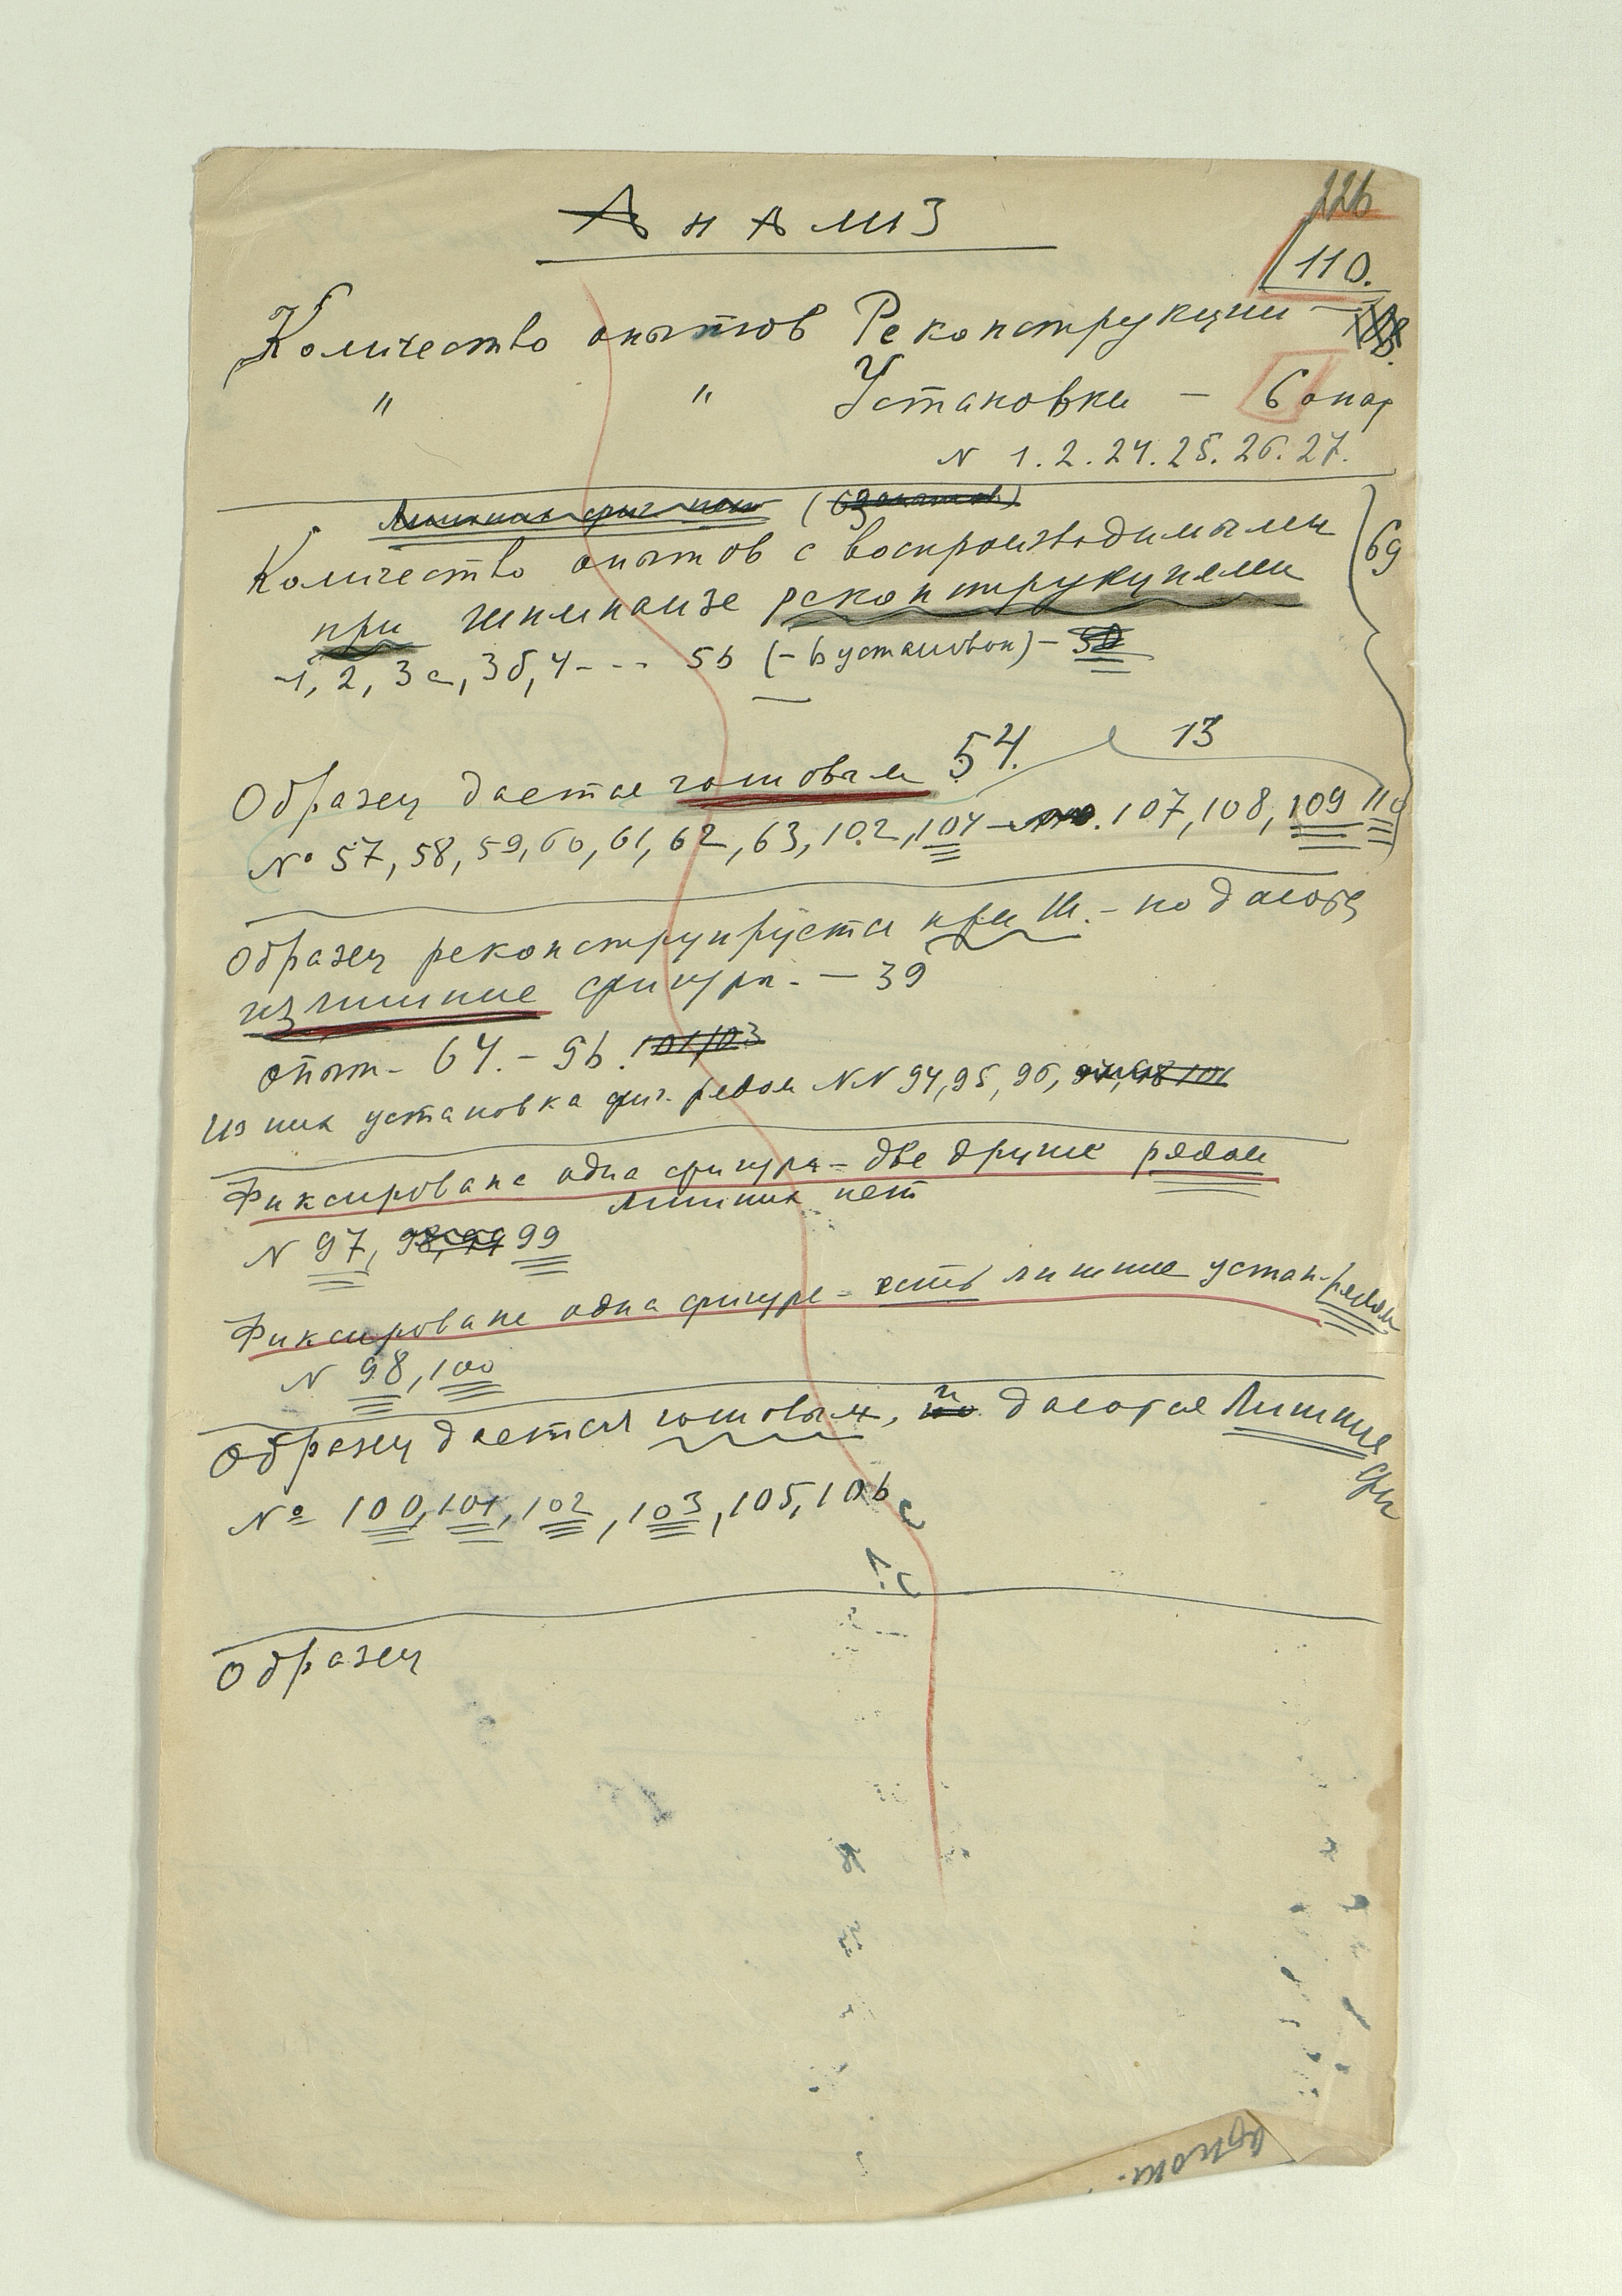 Анализ
226
110.
Количество опытов Реконструкции –
" " Установки – 6 опы
N 1.2.24.25.26.27.
Лишних фигур нет (63 опытов)
Количество опытов с воспроизводимыми
69
при шимпанзе реконструкциями
1, 2, 3а, 3б, 4 - - - 56 (– 6 установок) –
13
Образец дается готовым 54.
№ 57, 58, 59, 60, 61, 62, 63, 102, 104 – 107, 108, 109 110
Образец реконструируется при Ш. – но даются
излишние фигуры. – 39
опыт – 64. – 96. 101, 103
Из них установка фиг. рядом NN 94, 95, 96,
Фиксирована одна фигура – две другие рядом
лишних нет
N 97, 98, 99 99
Фиксирована одна фигура – есть лишние устан. рядом
N 98, 100
Образец дается готовым, но и даются Лишние
фи
№ 100, 101, 102, 103, 105, 106
Образец